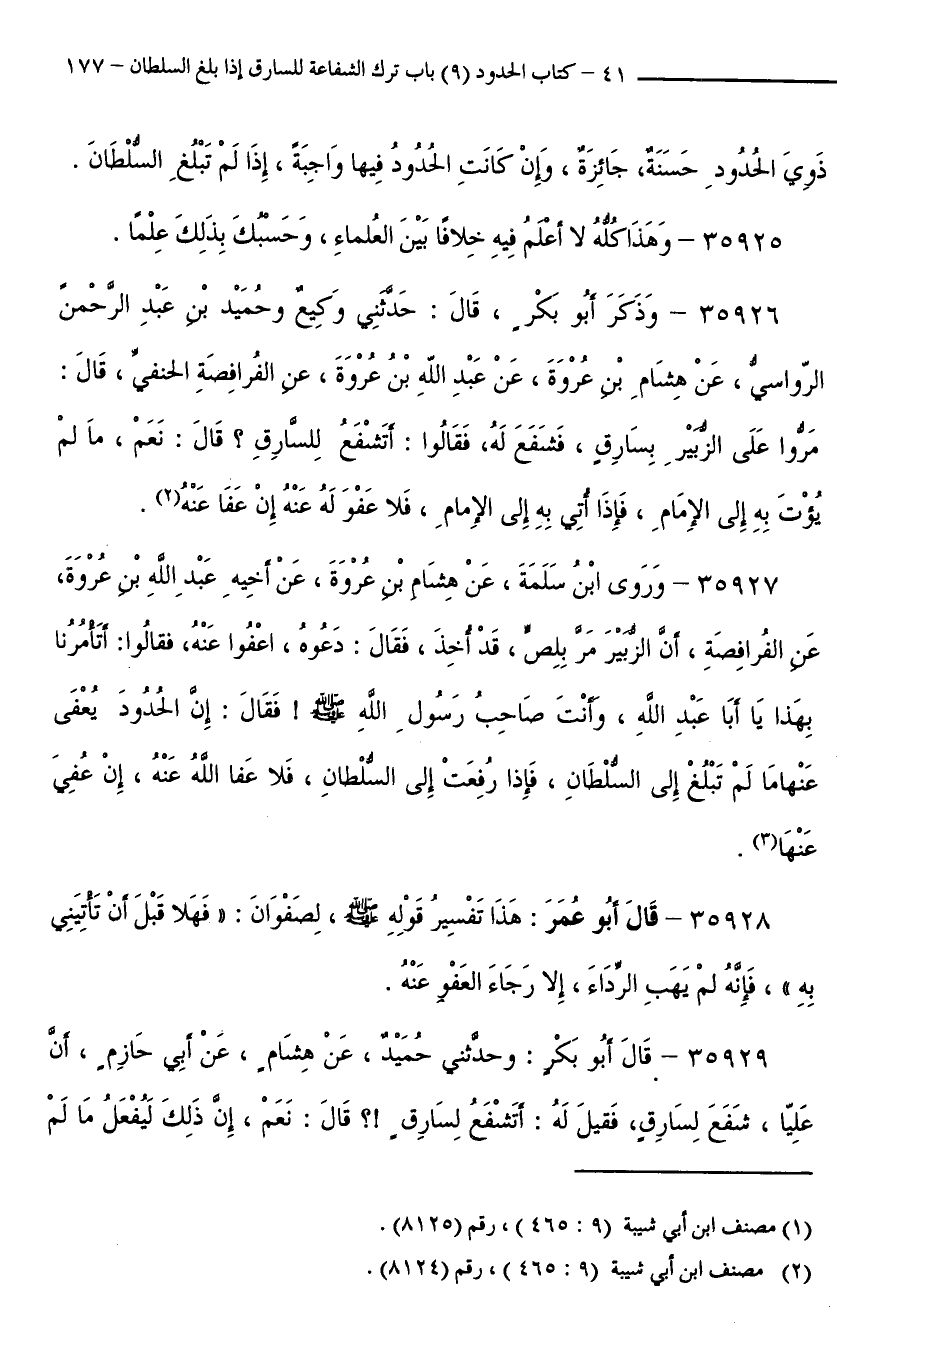 ٤١ – كتاب الحدود (٩) باب ترك الشفاعة للسارق إذا بلغ السلطان – ١٧٧
ذَوِيَ الحُدُودِ حَسَنَةٌ، جَائِزَةٌ ، وَإِنْ كَانَتِ الحُدُودُ فِيها وَاجِبَةً ، إِذَا لَمْ تَبْلُغِ السُّلْطَانَ .
٣٥٩٢٥ – وَهَذَا كُلُّهُ لا أعْلَمُ فِيهِ خِلافًا بَيْنَ العُلماءِ ، وَحَسْبُكَ بِذَلِكَ عِلْمًا .
٣٥٩٢٦ – وَذَكَرَ أَبُو بَكْرٍ ، قَالَ : حَدَّثَنِي وَكِيعٌ وحُمَيْد بْنِ عَبْدِ الرَّحْمنً
الرّواسيُّ ، عَنْ هِشَامِ بْنِ عُرْوَةَ ، عَنْ عَبْدِ اللّهِ بْنُ عُرْوَةَ ، عنِ الفُرافِصَةِ الحنفيِّ ، قَالَ :
مَرُّوا عَلَى الزُّبَيْرِ بِسَارِقٍ ، فَشَفَعَ لَهُ، فَقَالُوا : أَتَشْفَعُ لِلسَّارِقِ ؟ قَالَ : نَعَمْ ، مَا لمْ
يُؤْتَ بِهِ إِلى الإِمَامِ ، فَإِذَا أُتِي بِهِ إِلى الإِمامِ ، فَلا عَفْوَ لَهُ عَنْهُ إِنْ عَفَا عَنْهُ(٢) .
٣٥٩٢٧ – وَرَوى ابْنُ سَلَمَةَ ، عَنْ هِشَامِ بْنِ عُرْوَةَ ، عَنْ أَخِيهِ عَبْدِ اللَّهِ بْنِ عُرْوَةَ،
عَنِ الفُرافِصَةِ ، أَنَّ الزُّبَيْرَ مَرَّ بِلِصٍّ ، قَدْ أُخِذَ ، فَقَالَ : دَعُوهُ ، اعْفُوا عَنْهُ، فقالُوا: أتَأْمُرُنا
بِهَذا يَا أَبَا عَبْدِ اللَّهِ ، وأَنْتَ صَاحِبُ رَسُولِ اللَّهِ ﷺ ! فَقَالَ : إِنَّ الحُدُودَ يُعْفَى
عَنْهامَا لَمْ تَبْلُغْ إِلى السُّلْطَانِ ، فَإِذا رُفِعَتْ إِلى السُّلْطانِ ، فَلا عَفا اللَّهُ عَنْهُ ، إِنْ عُفِيَ
عَنْهَا(٣) .
٣٥٩٢٨ – قَالَ أَبُو عُمَرَ : هَذَا تَفْسِيرُ قَوْلِهِ ﷺ ، لِصَفْوَانَ : « فَهَلا قَبْلَ أَنْ تَأْتِيَنِي
بِهِ » ، فَإِنَّهُ لمْ يَهَبِ الرِّدَاءَ ، إِلا رَجَاءَ العَفْوِ عَنْهُ .
٣٥٩٢٩ – قَالَ أَبُو بَكْرٍ : وحدَّثني حُمَيْدٌ ، عَنْ هِشَامٍ ، عَنْ أَبِي حَازِمٍ ، أَنَّ
عَلِيّا ، شفَعَ لِسَارِقٍ، فَقِيلَ لَهُ : أَتَشْفَعُ لِسَارِقٍ ؟! قَالَ : نَعَمْ ، إِنَّ ذَلِكَ لَيُفْعَلُ مَا لَمْ
(١) مصنف ابن أبي شيبة (٩ : ٤٦٥) ، رقم (٨١٢٥) .
(٢) مصنف ابن أبي شيبة (٩ : ٤٦٥) ، رقم (٨١٢٤) .